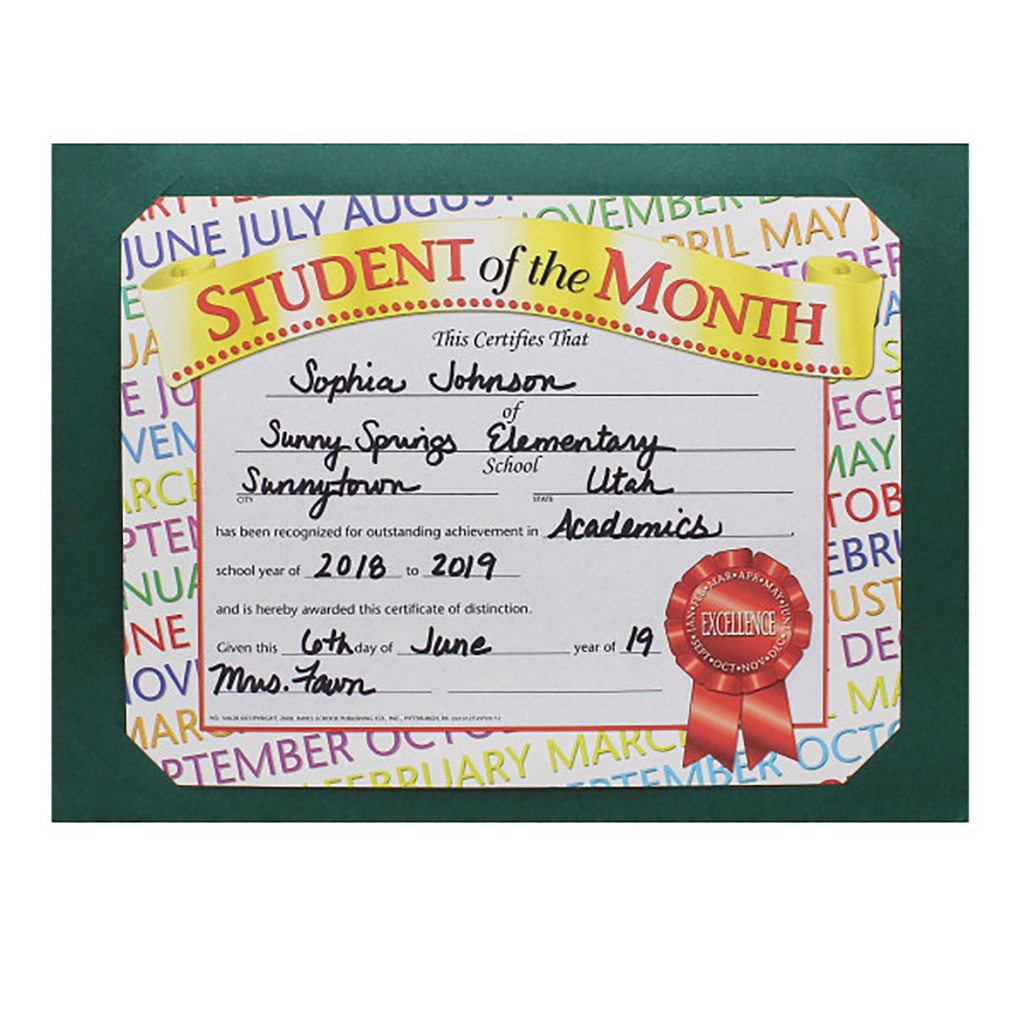 STUDENT of the MONTH
This Certifies That
Sophia Johnson
of
Sunny Springs Elementary
School
Sunnytown Utah
CITY STATE
has been recognized for outstanding achievement in Academics.
school year of 2018 to 2019
and is hereby awarded this certificate of distinction.
Given this 6th day of June year of 19
Mrs. Fawn
JAN•FEB•MAR•APR•MAY•JUN
EXCELLENCE
SEPT•OCT•NOV•DEC
JUNE JULY AUGUST
NOVEMBER
APRIL MAY
SEPTEMBER OCTOBER
FEBRUARY MARCH
SEPTEMBER OCTO